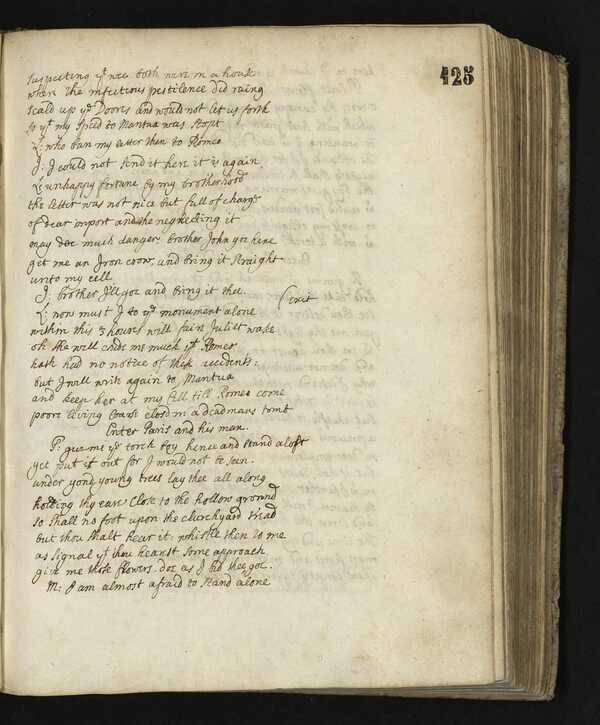 425
suspecting yt wee both were in a house
where the infectious pestilence did raing
seald up ye Doors and would not let us forth
so yt my speed to Mantua was stopt
L: who bare my letter then to Romeo
J: I could not send it here it is again
L: unhappy fortune by my brotherhood
the letter was not nice but full of charge
of dear import and the neglecting it
may doe much danger brother John goe hence
get me an Iron crow and bring it straight
unto my cell
J: brother I'll goe and bring it thee. exit
L: now must I to ye monument alone
within this 3 hours will fair Juliet wake
oh she will chide me much yt Romeo
hath had no notice of these accidents:
but I will write again to Mantua
and keep her at my cell till Romeo come
poore living coarse closd in a deadmans tomb
Enter Paris and his man.
P: give me ye torch boy hence and stand aloft
yet put it out for I would not be seen.
under yond young trees lay thee all along
holding thy eare close to the hollow ground
so shall no foot upon the churchyard tread
but thou shalt hear it: whistle then to me
as signal yt thou hearst some approach
give me those flowers. doe as I bid thee goe.
M: I am almost afraid to stand alone